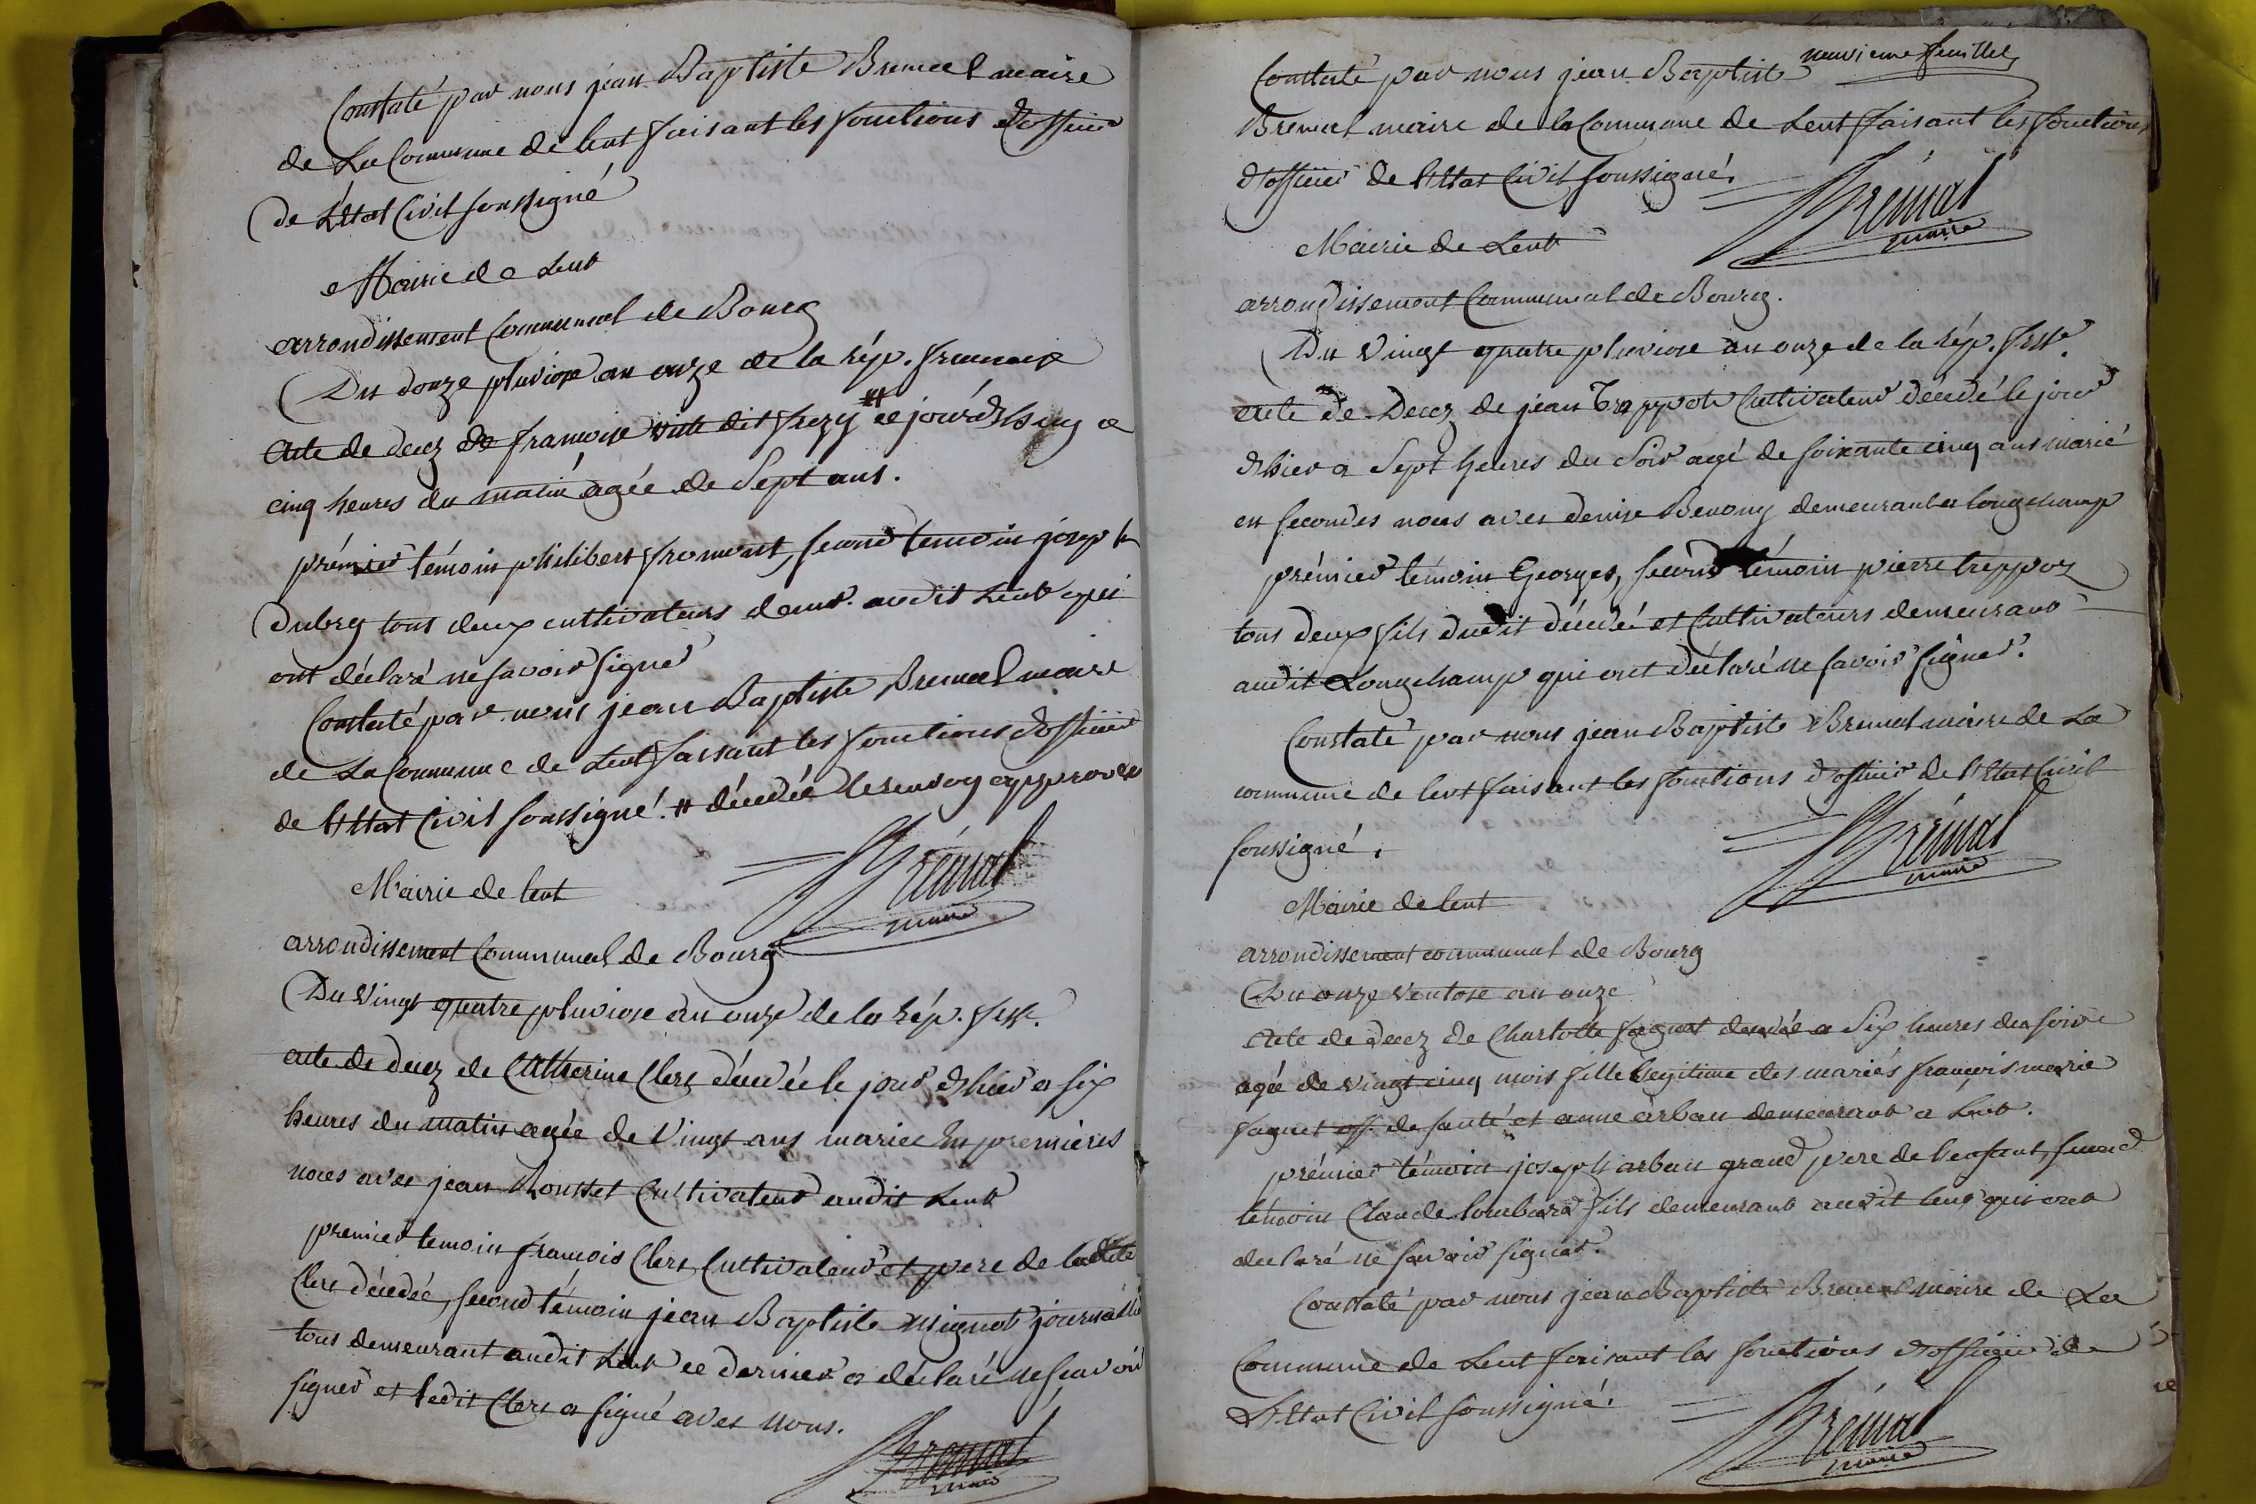 Constaté par nous jean Baptiste Bremal maire
de La Commune de lent faisant les fonctions d'officier
de L'Etat Civil soussigné
Mairie de Lent
arrondissement Communal de Bourg
Du douze pluviose an onze de la rép. francaise
acte de decez de francoise dit # ce jourd'huy a
cinq heures du matin agée de Sept ans.
prémier témoin philibert fromont, second temoin joseph
Dubry tous deux cultivateurs demt. audit Lent qui
ont déclaré ne savoir signer
Constaté par nous jean Baptiste Bremal maire
de La Commune de Lent faisant les fonctions d'officier
de l'Etat Civil soussigné. # décédée le renvoy approuvé
Brémal
maire
Mairie de lent
arrondissement Communal de Bourg
Du Vingt quatre pluviose an onze de la rép. fsse.
acte de decez de Catherine Clerc décédée le jour d'hier a six
heures du matin agée de Vingt ans mariée En premières
noces avec jean Rousset Cultivateur audit Lent
premier temoin francois Clerc Cultivateur et pere de ladite
Clerc décédée, second témoin jean Baptiste mignot journalier
tous demeurant audit Lent ce dernier a déclaré ne savoir
signer et ledit Clerc a signé avec nous.
Brémal
maire
neuvieme feuillet
Constaté par nous jean Baptiste
Bremal maire de la Commune de Lent faisant les fonctions
d'officier de l'Etat Civil soussigné.
Brémal
maire
Mairie de Lent
arrondissement Communal de Bourg.
Du Vingt quatre pluviose an onze de la rép. fsse.
acte de Decez de jean Treppot Cultivateur décédé le jour
d'hier a Sept heures du Soir agé de soixante cinq ans marié
en secondes noces avec denise Benony demeurant a longchamp
prémier témoin Georges, second témoin pierre treppoz
tous deux fils dudit décédé et Cultivateurs demeurant
audit Longchamp qui ont déclaré ne savoir signer.
Constaté par nous jean Baptiste Bremal maire de La
commune de lent faisant les fonctions d'officier de l'Etat Civil
soussigné.
Brémal
maire
Mairie de lent
arrondissement communal de Bourg
Du onze Ventose an onze
acte de decez de Charlotte faguet decedée a Six heures du soir
agée de vingt cinq mois fille legitime des mariés françois marie
faguet off. de santé et anne arban demeurant a Lent.
prémier témoin joseph arban grand pere de l'enfant, second
témoin Claude lombard fils demeurant audit lent qui ont
declaré ne savoir signer.
Constaté par nous jean Baptiste Bremal maire de La
Commune de Lent faisant les fonctions d'officier de
L'Etat Civil soussigné.
Brémal
maire